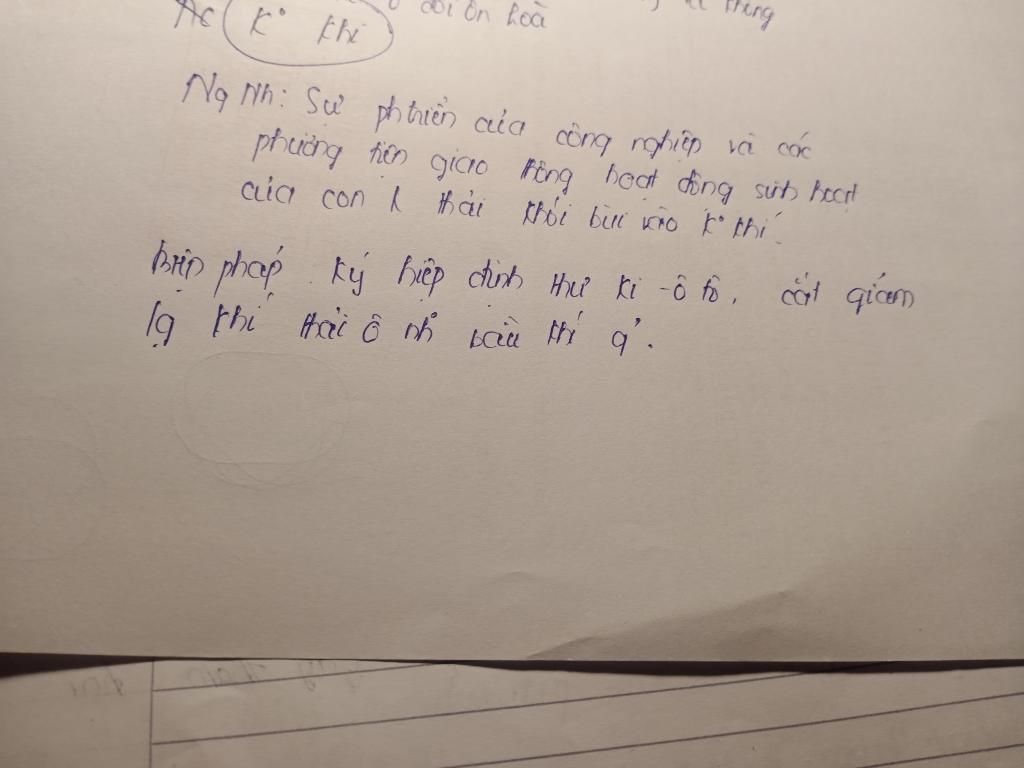 đới ôn hoà
K° khí
Ng Nh: Sự ph triển của công nghiệp và các
phương tiện giao thông hoạt động sinh hoạt
của con k thải khói bụi vào k° khí.
Biện pháp. Ký hiệp định thư Ki-ô tô, cắt giảm
lg khí thải ô nh bầu khí q°.